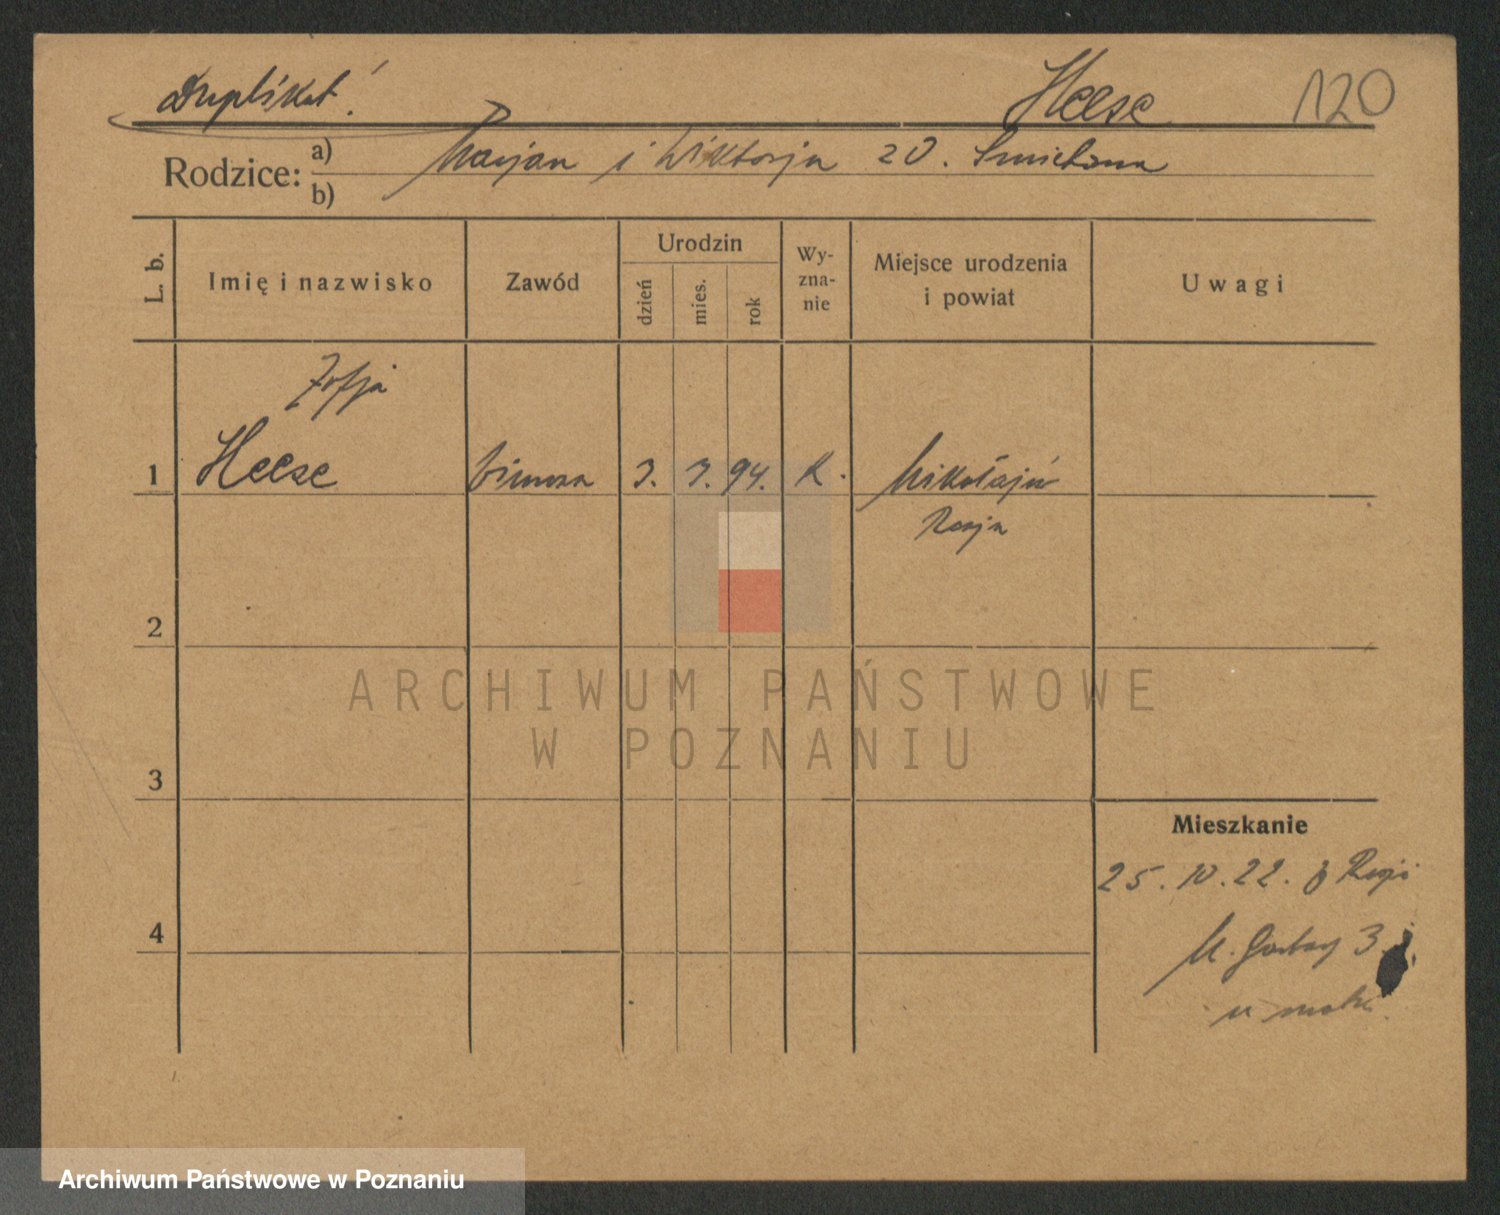 Duplikat!
Heese
120
Rodzice: a)
b)
Marjan i Wiktorja zd. Smietana
L. b.
Imię i nazwisko
Zawód
Urodzin
dzień
mies.
rok
Wy-
zna-
nie
Miejsce urodzenia
i powiat
Uwagi
Zofja
1 Heese biurow 3. 7. 94. K. Mikołajów
Rosja
2
3
4
Mieszkanie
25. 10. 22. z Rosji
M. Garbary 3
u matki
ARCHIWUM PAŃSTWOWE
W POZNANIU
Archiwum Państwowe w Poznaniu